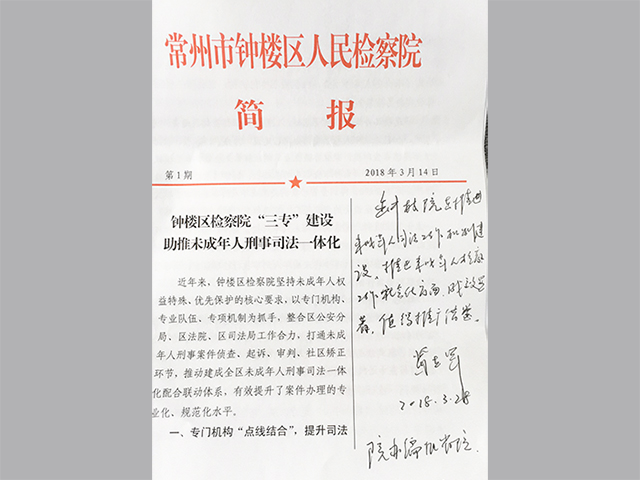 常州市钟楼区人民检察院
简 报
第1期 2018年3月14日
钟楼区检察院“三专”建设
助推未成年人刑事司法一体化
近年来，钟楼区检察院坚持未成年人权
益特殊、优先保护的核心要求，以专门机构、
专业队伍、专项机制为抓手，整合区公安分
局、区法院、区司法局工作合力，打通未成
年人刑事案件侦查、起诉、审判、社区矫正
环节，推动建成全区未成年人刑事司法一体
化配合联动体系，有效提升了案件办理的专
业化、规范化水平。
一、专门机构“点线结合”，提升司法
院在推进
未成年人司法工作机制建
设、推进未成年人检察
工作社会化方面，成效显
著，值得推广借鉴。
2018.3.28